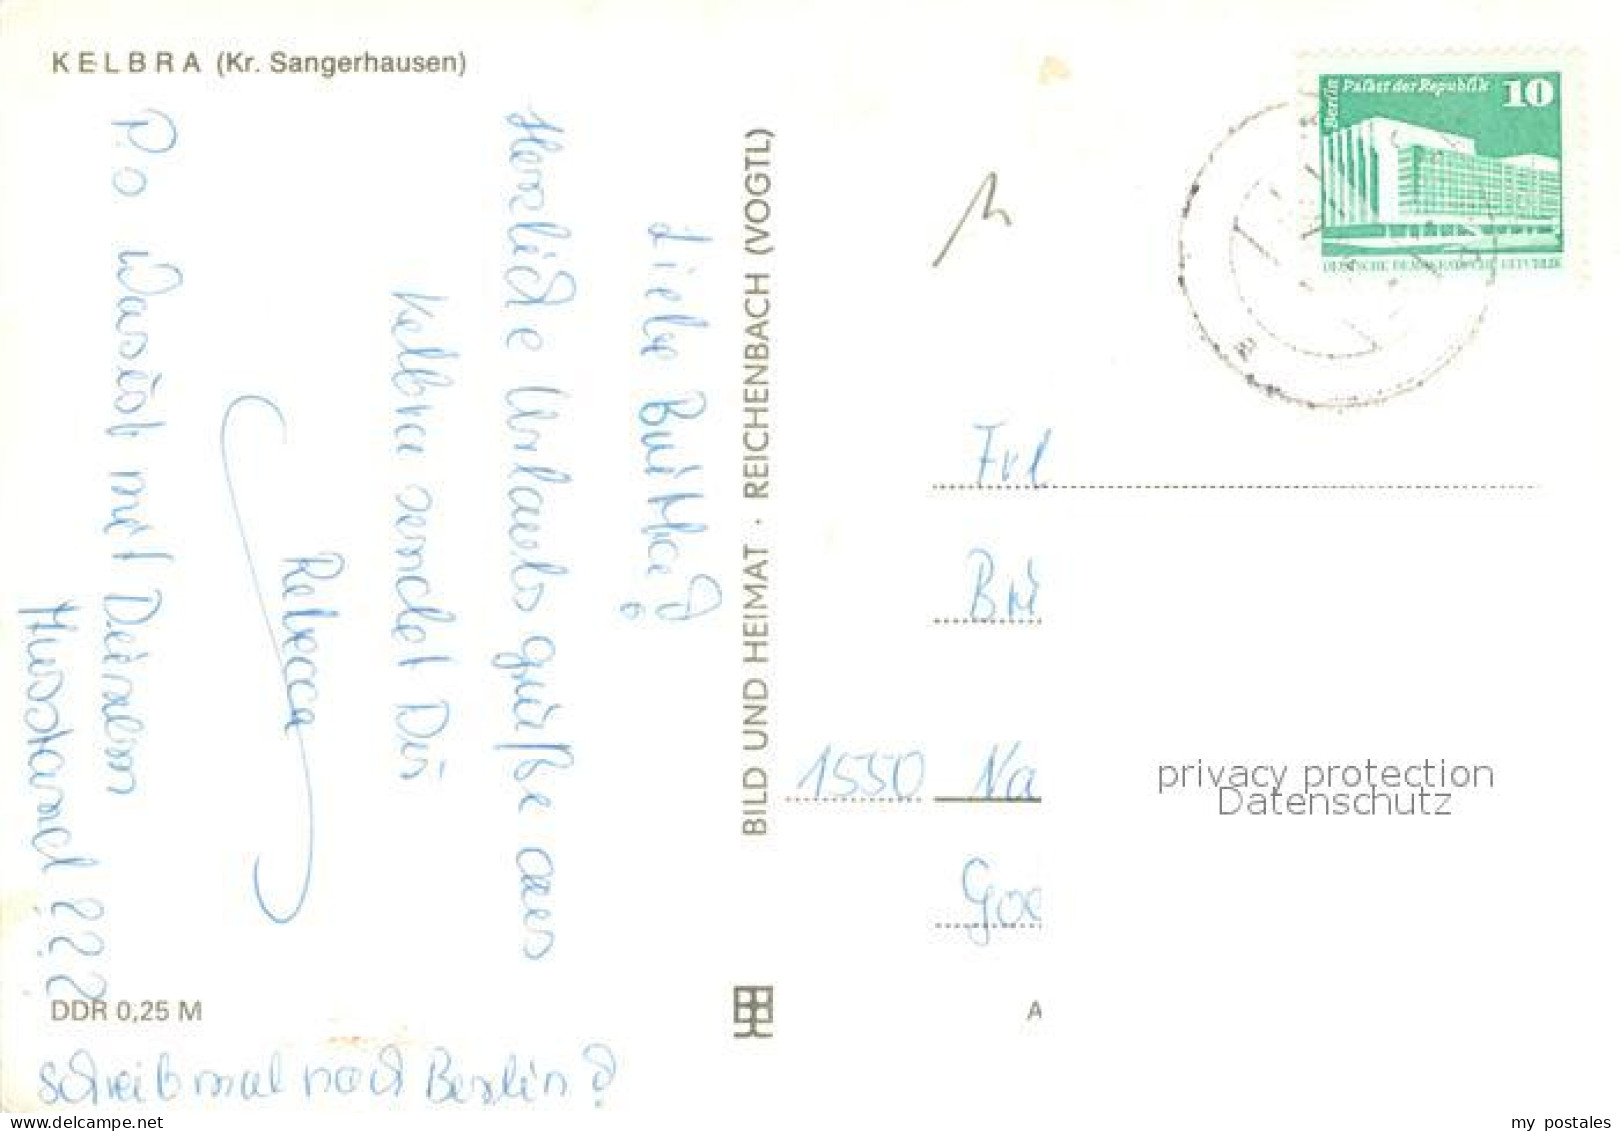 KELBRA (Kr. Sangerhausen)
Liebe
Herzliche Urlaubsgrüße aus
Kelbra sendet Dir
Rebecca
P.S. Was ist mit Deinem
Husband ???
schreib mal nach Berlin!
DDR 0,25 M
BILD UND HEIMAT · REICHENBACH (VOGTL)
Berlin Palast der Republik 10
DEUTSCHE DEMOKRATISCHE REPUBLIK
Frl
Bri
1550 Na
Goe
A
privacy protection
Datenschutz
delcampe.net
my_postales